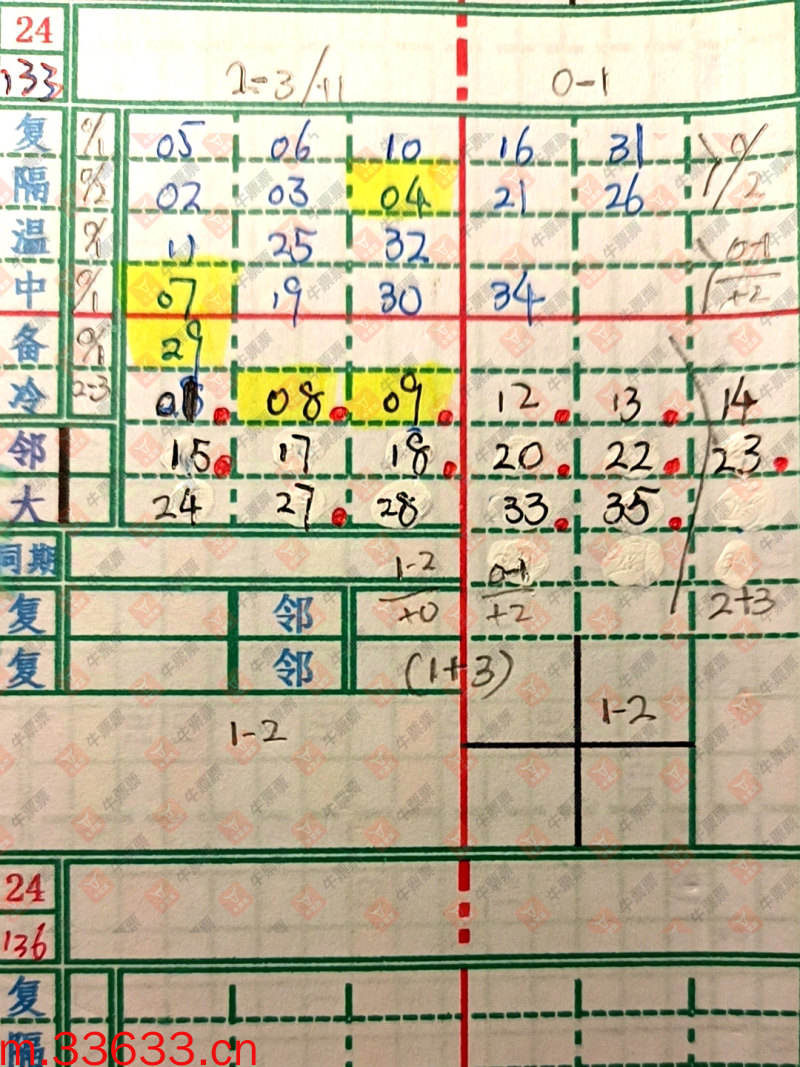 24
133 2-3/11 0-1
复 0/1 05 06 10 16 31 0/2
隔 0/2 02 03 04 21 26
温 0/1 11 25 32 0-1
中 0/1 07 19 30 34 +2
备 0/1 29
冷 2-3 01 08 09 12 13 14
邻 15 17 18 20 22 23
大 24 27 28 33 35
同期 1-2 0-1
复 邻 +0 +2 2+3
复 邻 (1+3)
1-2 1-2
24
136
复
隔
m.33633.cn
牛票票